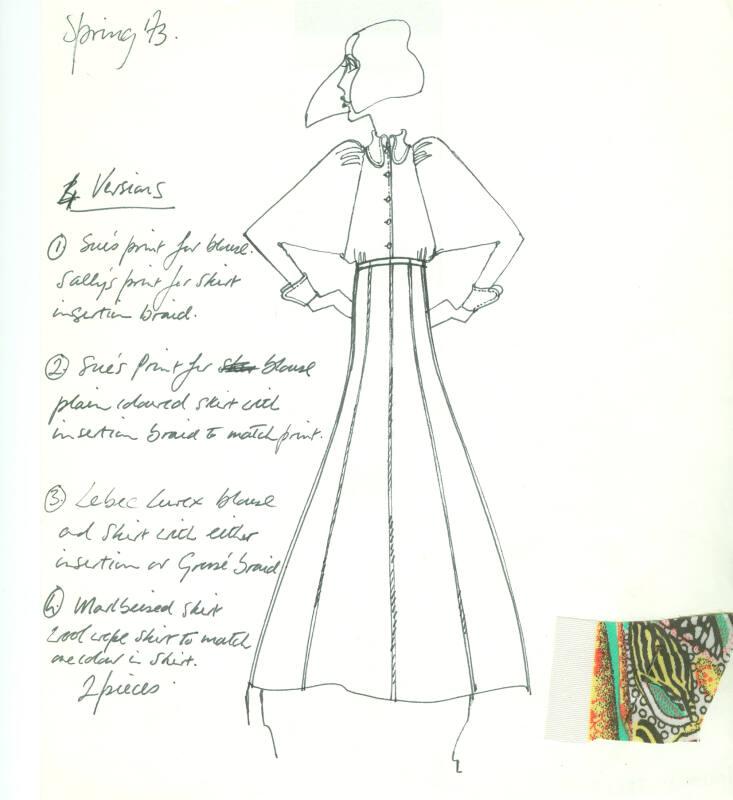 Spring '73.
4 Versions
① Sue's print for blouse.
Sally's print for skirt
insertion braid.
②. Sue's Print for blouse
plain coloured skirt with
insertion braid to match print.
③. Lurex blouse
and skirt with either
insertion or braid
④. skirt
Wool crepe skirt to match
one colour in skirt.
2 pieces.